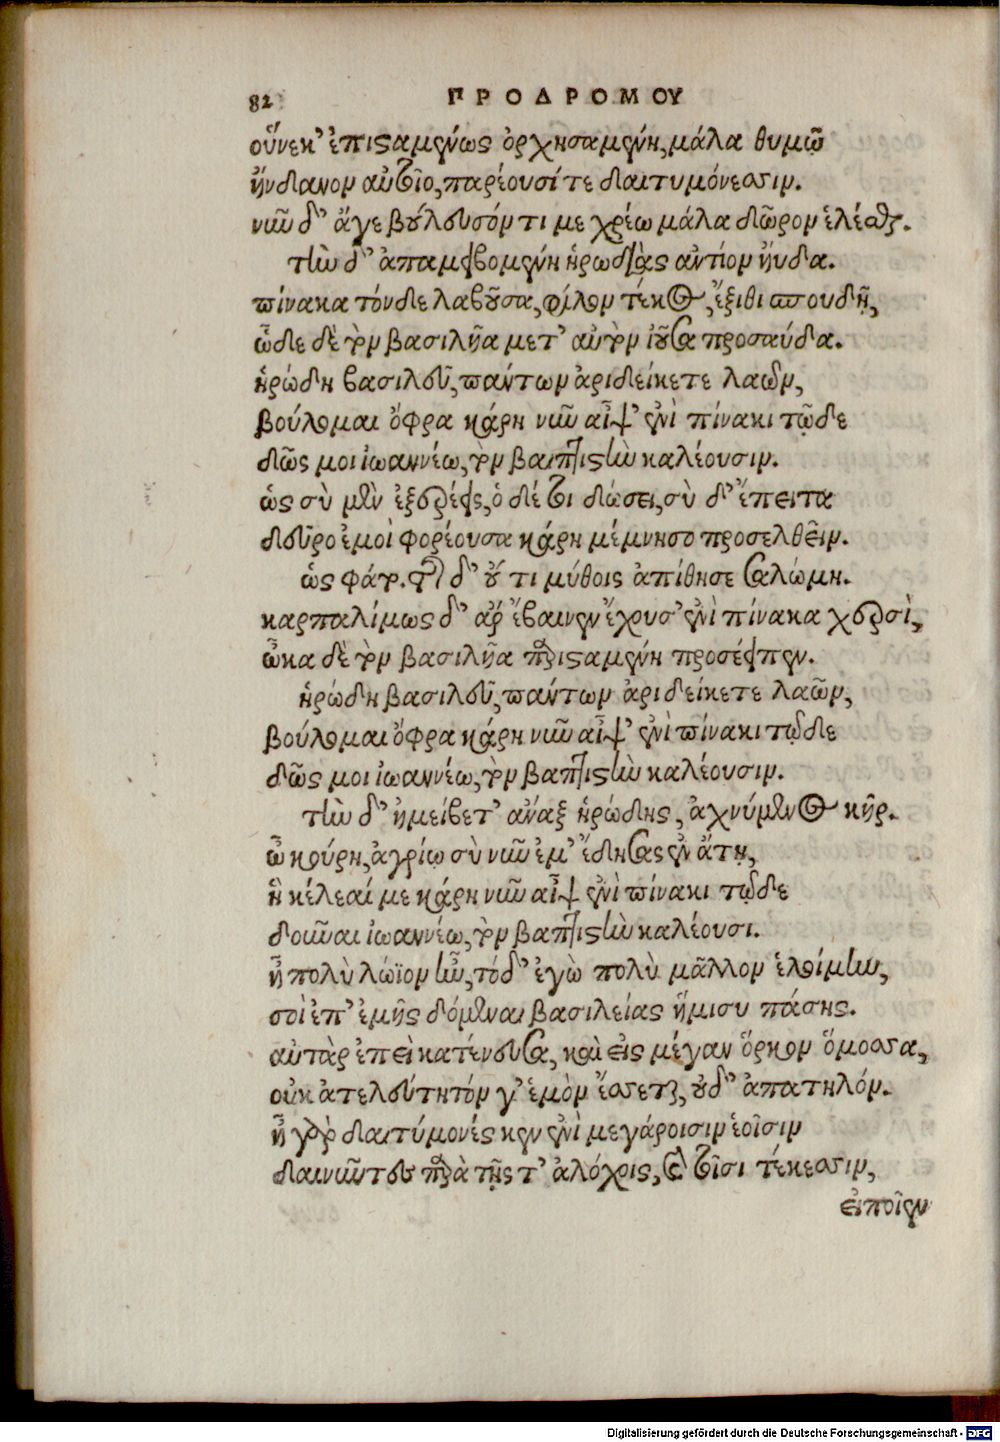 82 ΠΡΟΔΡΟΜΟΥ
οὕνεκ' ἐπισαμένως ὀρχησαμένη, μάλα θυμῷ
ἥνδανον αὐτῖο, παρέουσί τε δαιτυμόνεσσιν.
νῦν δ' ἄγε βούλευσόν τι με χρέω μάλα δῶρον ἑλέσθαι.
τὴν δ' ἀπαμειβομένη ἡρωδιὰς ἀντίον ηὔδα.
πίνακα τόνδε λαβοῦσα, φίλον τέκος, ἔξιθι σπουδῇ,
ὧδε δὲ τὸν βασιλῆα μετ' αὐτὸν ἰοῦσα προσαύδα.
ἡρώδη βασιλεῦ, πάντων ἀριδείκετε λαῶν,
βούλομαι ὄφρα κάρη νῦν αἶψ' ἐνὶ πίνακι τῷδε
δῶς μοι ἰωαννέω, τὸν βαπτιστὴν καλέουσιν.
ὡς σὺ μὲν ἐξερέεις, ὁ δέ τοι δώσει, σὺ δ' ἔπειτα
δεῦρο ἐμοὶ φορέουσα κάρη μέμνησο προσελθεῖν.
ὡς φάτο. τῇ δ' οὔ τι μύθοις ἀπίθησε σαλώμη.
καρπαλίμως δ' ἄρ' ἔβαινεν ἔχουσ' ἐνὶ πίνακα χερσὶ,
ὦκα δὲ τὸν βασιλῆα παρισαμένη προσέειπεν.
ἡρώδη βασιλεῦ, πάντων ἀριδείκετε λαῶν,
βούλομαι ὄφρα κάρη νῦν αἶψ' ἐνὶ πίνακι τῷδε
δῶς μοι ἰωαννέω, τὸν βαπτιστὴν καλέουσιν.
τὴν δ' ἠμείβετ' ἄναξ ἡρώδης, ἀχνύμενος κῆρ.
ὦ κούρη, ἀγρίῳ σὺ νῦν ἐμ' ἔδησας ἐν ἄτῃ,
ἣ κέλεαί με κάρη νῦν αἶψ ἐνὶ πίνακι τῷδε
δοῦναι ἰωαννέω, τὸν βαπτιστὴν καλέουσι.
ἦ πολὺ λώϊον ἦν, τόδ' ἐγὼ πολὺ μᾶλλον ἑλοίμην,
σοὶ ἐπ' ἐμῆς δόμεναι βασιλείας ἥμισυ πάσης.
αὐτὰρ ἐπεὶ κατένευσα, καὶ εἰς μέγαν ὅρκον ὄμοσσα,
οὐκ ἀτελεύτητόν γ' ἐμὸν ἔσσεται, οὐδ' ἀπατηλόν.
ἦ γὰρ δαιτύμονές κεν ἐνὶ μεγάροισιν ἑοῖσιν
δαινῦντο παρὰ τῇς τ' ἀλόχοις, καὶ τοῖσι τέκεσσιν,
εἰποῖεν
Digitalisierung gefördert durch die Deutsche Forschungsgemeinschaft - DFG